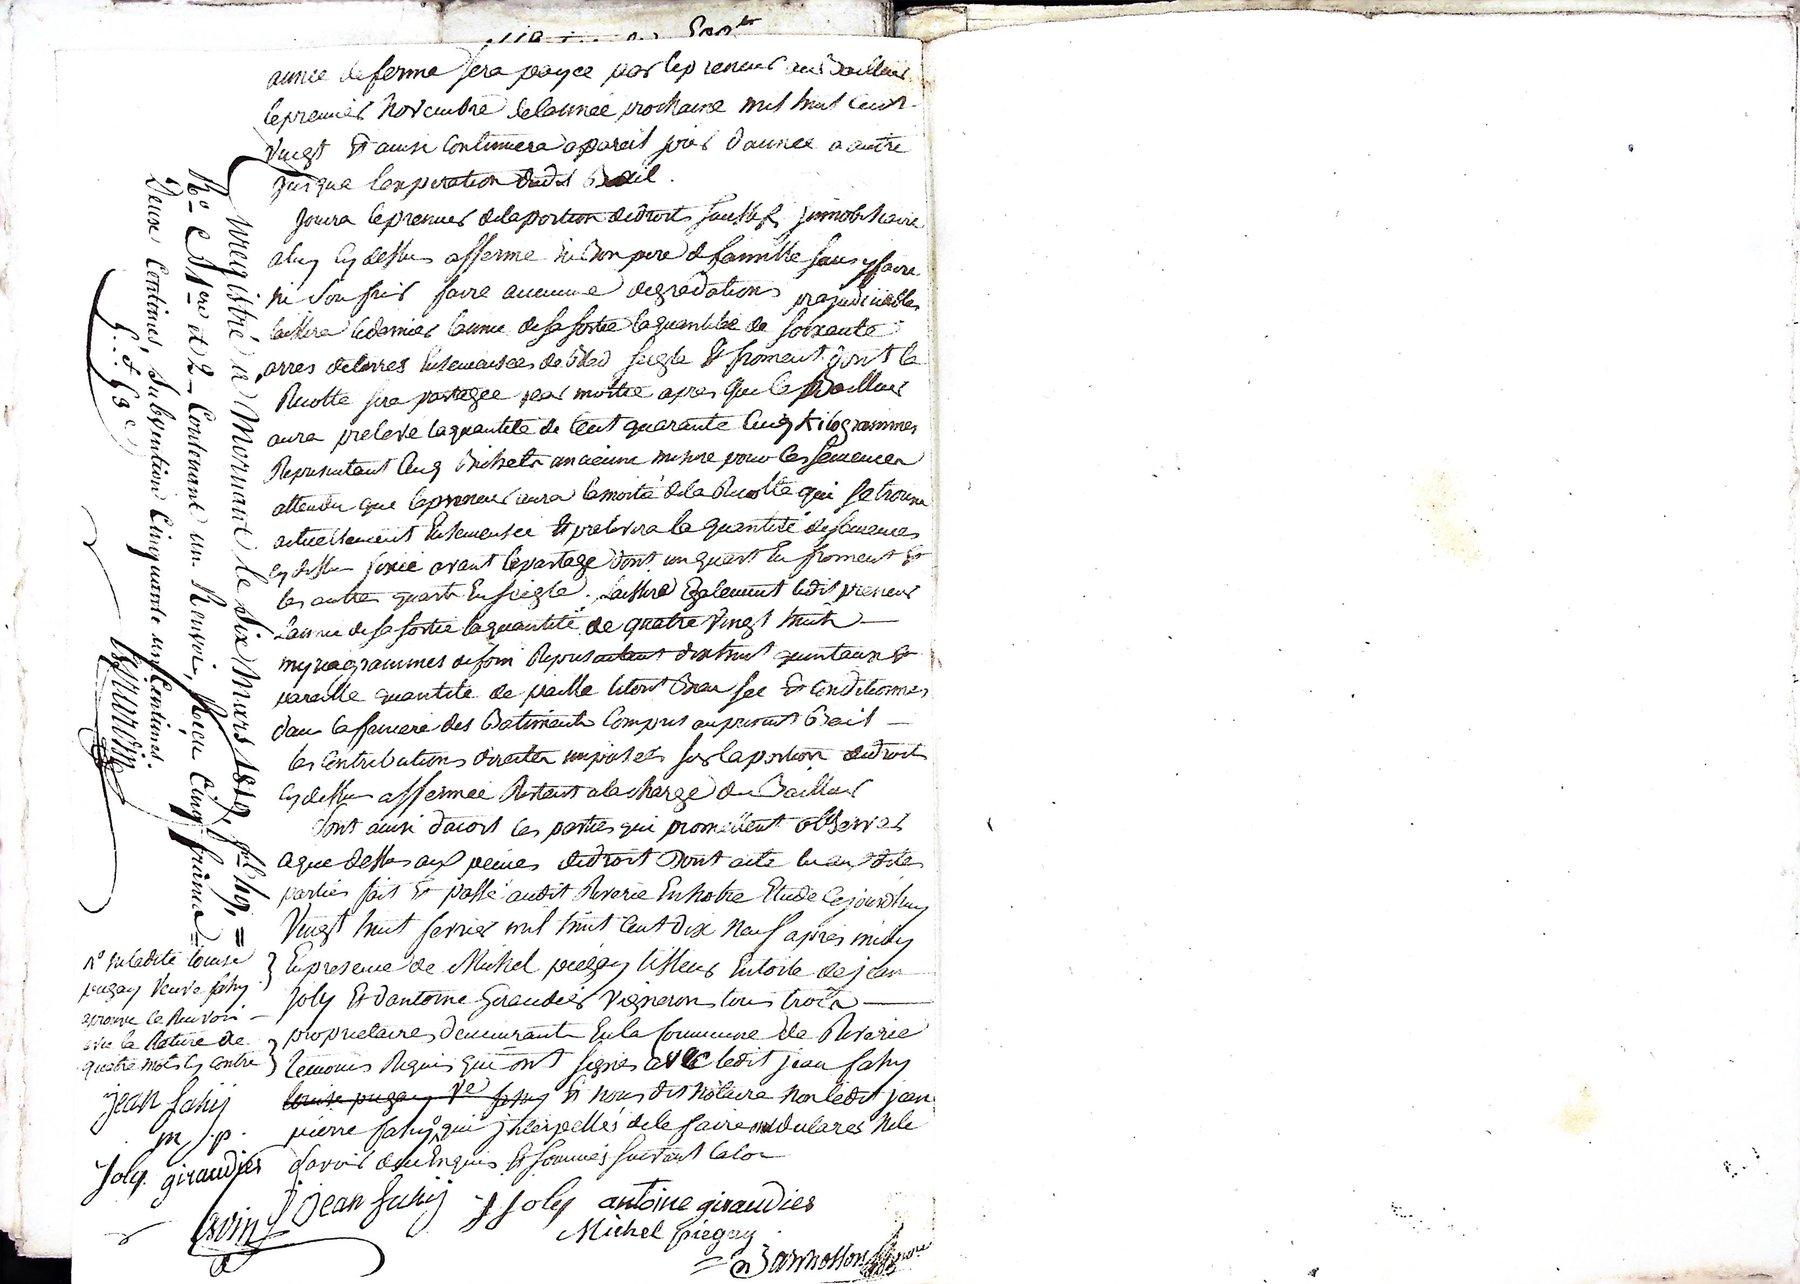 année de ferme sera payée par le preneur au Bailleur
le premier Novembre de lannée prochaine mil huit cent
vingt Et ainsi Continuera apareil jour dannée a autre
jusqua lexpiration dudit Bail.
Jouira le preneur de la portion de droits immobiliaire
a luy cy dessus affermé En Bon pere de famille sans y faire
ni soufrir faire aucune degradations prejudiciables
laissera le dernier lannée de sa sortie la quantité de soixante
arres de terres Ensemensées de Bled seigle Et froment dont la
Recolte sera partagée par moitié apres que le Bailleur
aura prelevé la quantité de Cent quarante Cinq Kilogrammes
Representant Cinq Bichets ancienne mesure pour les semences
attendu que le preneur aura la moitié de la Recolte qui se trouve
actuellement Ensemensée Et prelevera la quantité de semences
cy dessus fixée avant le partage dont un quart En froment Et
les autres quarts En seigle. Laissera Egalement ledit preneur
Lannée de sa sortie la quantité de quatre vingt huit
myriagrammes de foin Representant dix huit quintaux Et
pareille quantité de paille letout Beau sec Et Conditionnés
dans les des Batiments Compris au present Bail
les Contributions directes imposées sur la portion de droits
cy dessus affermée Restent a la charge du Bailleur
Sont ainsi dacort les parties qui promettent observer
aque dessus aux peines de droit Dont acte lu aux dites
parties fait Et passé audit Riverie En notre Etude Cejourdhuy
Vingt huit fevrier mil huit Cent dix neuf apres midy
En presence de Michel piégay tisseur En toile de jean
joly Et dantoine Giraudier vigneron tous trois
proprietaires demeurants En la Commune de Riverie
temoins Requis qui ont signés avec ledit jean fahy
louise pugay Ve fahy Et nous dit Notaire non ledit jean
pierre fahy qui interpellés de le faire ont declarer ne le
savoir de ce Enquis Et sommés suivant la loi
jean fahij J Joly antoine giraudier
Michel piegay
no ni ladite louise
pugay veuve fahy
aprouvé le Renvoi
avec la Rature de
quatre mots cy contre
jean fahij
m p
Joly giraudier
Enregistré à Mornant le Six Mars 1819,
Ro. Contenant un Renvoi, Reçu Cinq francs
Deux Centimes, Subvention Cinquante un Centimes.